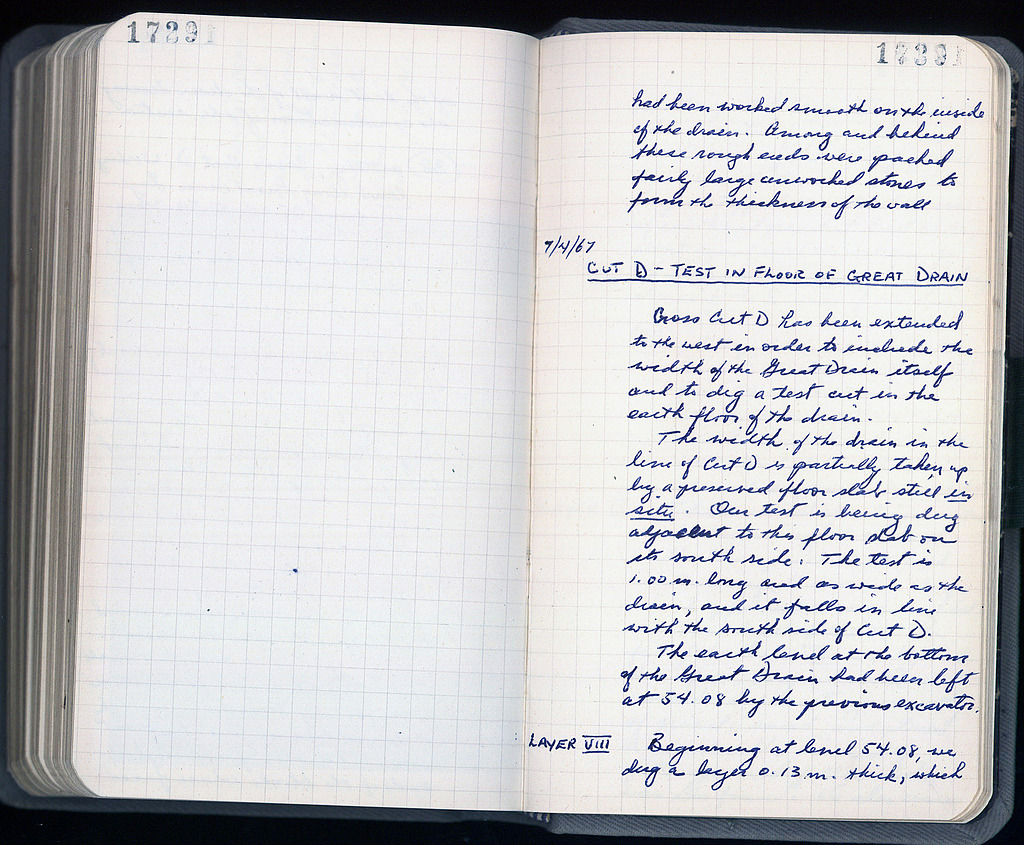 17291
17291
had been worked smooth on the inside
of the drain. Among and behind
these rough ends were packed
fairly large unworked stones to
form the thickness of the wall
7/4/67
CUT D - TEST IN FLOOR OF GREAT DRAIN
Cross Cut D has been extended
to the west in order to include the
width of the Great Drain itself
and to dig a test cut in the
earth floor of the drain.
The width of the drain in the
line of Cut D is partially taken up
by a preserved floor slab still in
situ. Our test is being dug
adjacent to this floor slab on
its south side. The test is
1.00 m. long and as wide as the
drain, and it falls in line
with the south side of Cut D.
The earth level at the bottom
of the Great Drain had been left
at 54.08 by the previous excavator.
LAYER VIII Beginning at level 54.08, we
dug a layer 0.13 m. thick, which